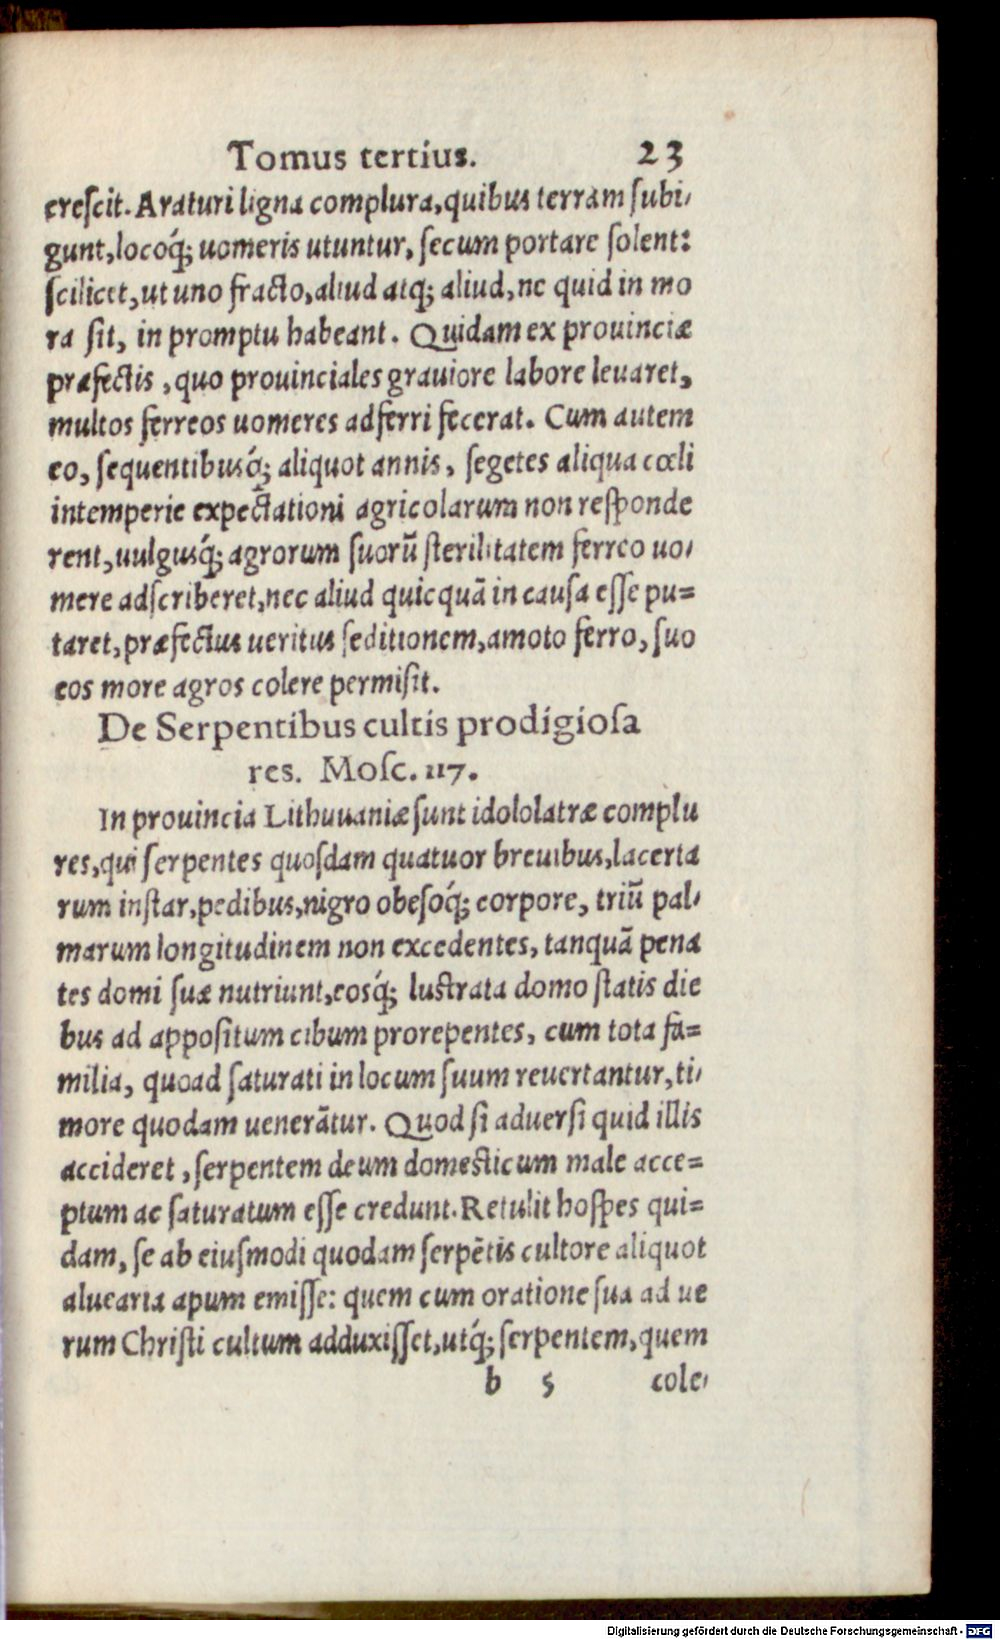 Tomus tertius. 23
creſcit. Araturi ligna complura, quibus terram ſubi-
gunt, locoq́; uomeris utuntur, ſecum portare ſolent:
ſcilicet, ut uno fracto, aliud atq; aliud, ne quid in mo
ra ſit, in promptu habeant. Quidam ex prouinciæ
præfectis, quo prouinciales grauiore labore leuaret,
multos ferreos uomeres adferri fecerat. Cum autem
eo, ſequentibusq́; aliquot annis, ſegetes aliqua cœli
intemperie expectationi agricolarum non reſponde
rent, uulgusq́; agrorum ſuorū ſterilitatem ferreo uo-
mere adſcriberet, nec aliud quicquã in cauſa eſſe pu=
taret, præfectus ueritus ſeditionem, amoto ferro, ſuo
eos more agros colere permiſit.
De Serpentibus cultis prodigioſa
res. Moſc. 117.
In prouincia Lithuuaniæ ſunt idololatræ complu
res, qui ſerpentes quoſdam quatuor breuibus, lacerta
rum inſtar, pedibus, nigro obeſoq́; corpore, triū pal-
marum longitudinem non excedentes, tanquã pena
tes domi ſuæ nutriunt, eosq́; luſtrata domo ſtatis die
bus ad appoſitum cibum prorepentes, cum tota fa=
milia, quoad ſaturati in locum ſuum reuertantur, ti-
more quodam uenerãtur. Quod ſi aduerſi quid illis
accideret, ſerpentem deum domeſticum male acce=
ptum ac ſaturatum eſſe credunt. Retulit hoſpes qui=
dam, ſe ab eiuſmodi quodam ſerpẽtis cultore aliquot
aluearia apum emiſſe: quem cum oratione ſua ad ue
rum Chriſti cultum adduxiſſet, utq́; ſerpentem, quem
b 5 cole-
Digitalisierung gefördert durch die Deutsche Forschungsgemeinschaft - DFG